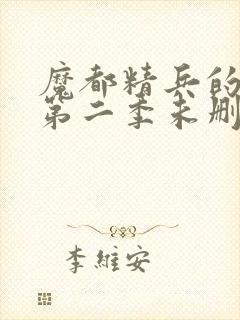 魔都精兵的
第二季未删
李維安